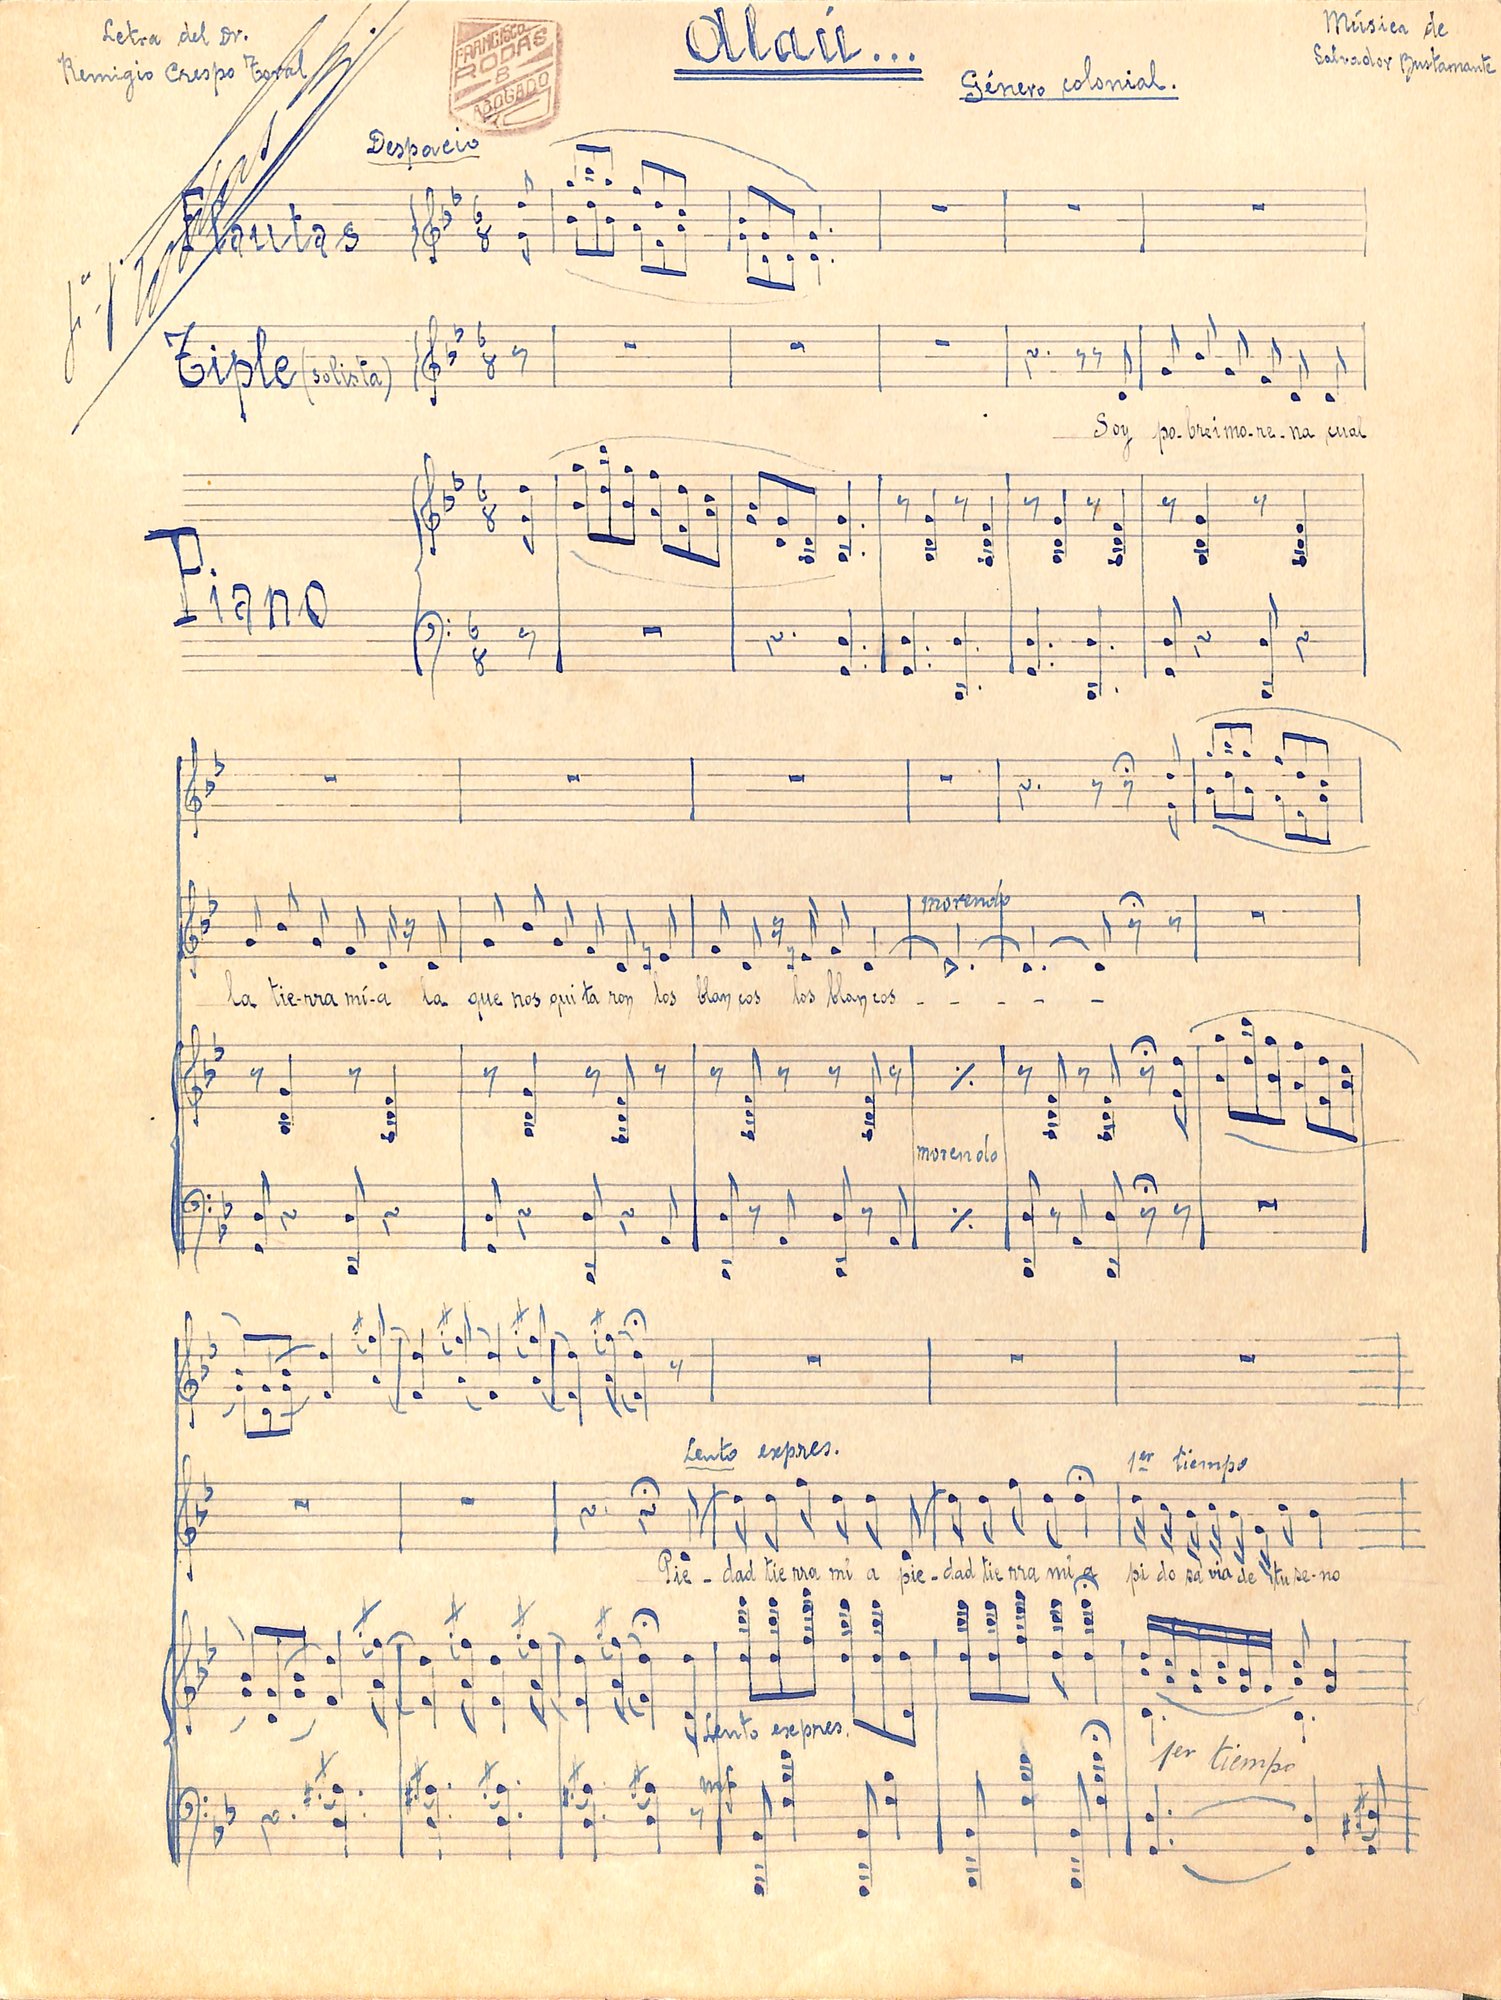 Letra del Dr.
Remigio Crespo Toral
FRANCISCO
RODAS
B
ABOGADO
Alaú...
Género colonial.
Música de
Salvador Bustamante
Despacio
Flautas
Tiple (solista)
Soy po-brei mo-re-na cual
Piano
morendo
la tie-rra mí-a la que nos qui ta ron los blancos los blancos - - - - -
morendo
Lento expres.
1er tiempo
Pie-dad tie rra mí a pie-dad tie rra mí a pi do sa via de tu se-no
Lento expres.
mf
1er tiempo